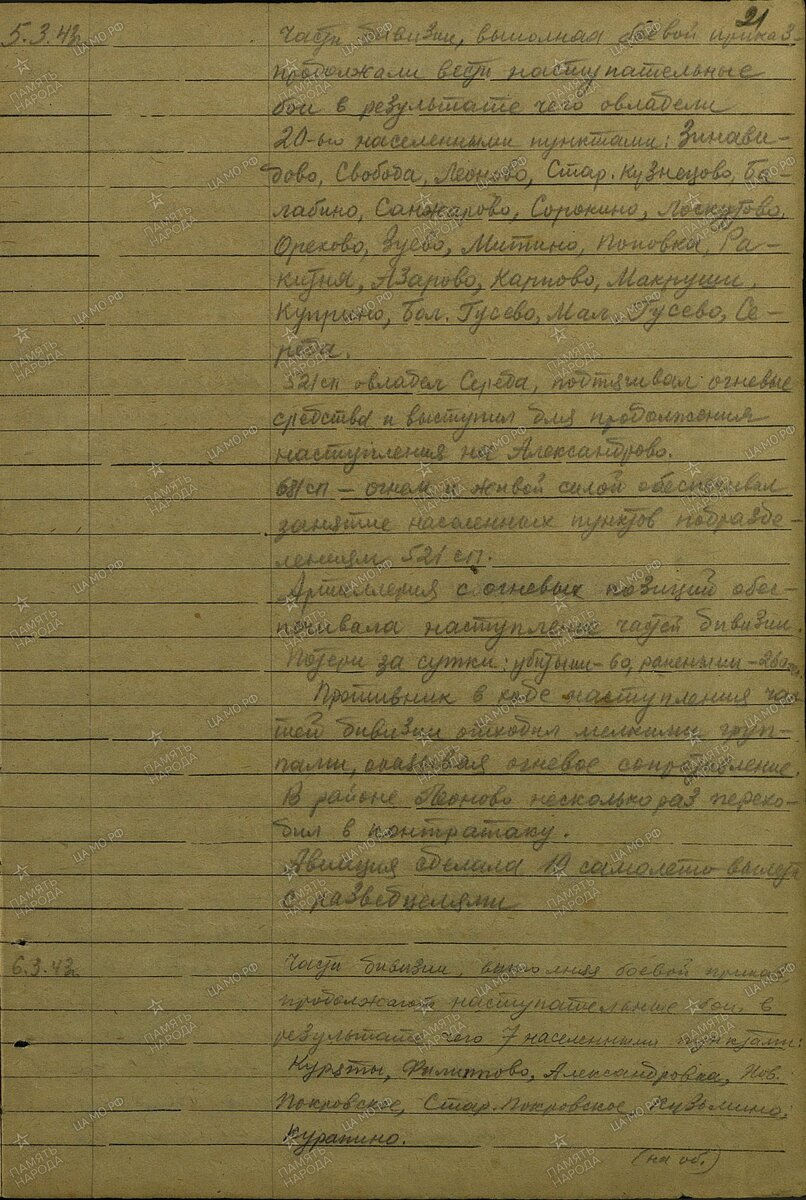 21
5.3.43г. Части дивизии, выполняя боевой приказ
продолжали вести наступательные
бои в результате чего овладели
20-ью населенными пунктами: Зинави-
дово, Свобода, Леоново, Стар. Кузнецово, Ба-
лабино, Санжарово, Сорокино, Лоскутово,
Орехово, Зуево, Митино, Поповка, Ра-
китня, Азарово, Карпово, Макруши,
Куприно, Бол. Гусево, Мал. Гусево, Се-
реда.
521 сп овладел Середа, подтягивал огневые
средства и выступил для продолжения
наступления на Александрово.
681 сп – огнем и живой силой обеспечивал
занятие населенных пунктов подразде-
лениям 521 сп.
Артиллерия с огневых позиций обес-
печивала наступление частей дивизии.
Потери за сутки: убитыми – 60, ранеными –
Противник в ходе наступления час-
тей дивизии отходил мелкими груп-
пами, оказывая огневое сопротивление.
В районе Леоново несколько раз перехо-
дил в контратаку.
Авиация сделала 10 самолето вылета
с разведцелями
6.3.43г. Части дивизии, выполняя боевой приказ
продолжают наступательные бои, в
результате чего 7 населенными пунктами:
Куряты, Филиппово, Александровка, Нов.
Покровское, Стар. Покровское, Кузьмино,
Курапино.
(на об.)
ПАМЯТЬ НАРОДА
ЦАМО.РФ